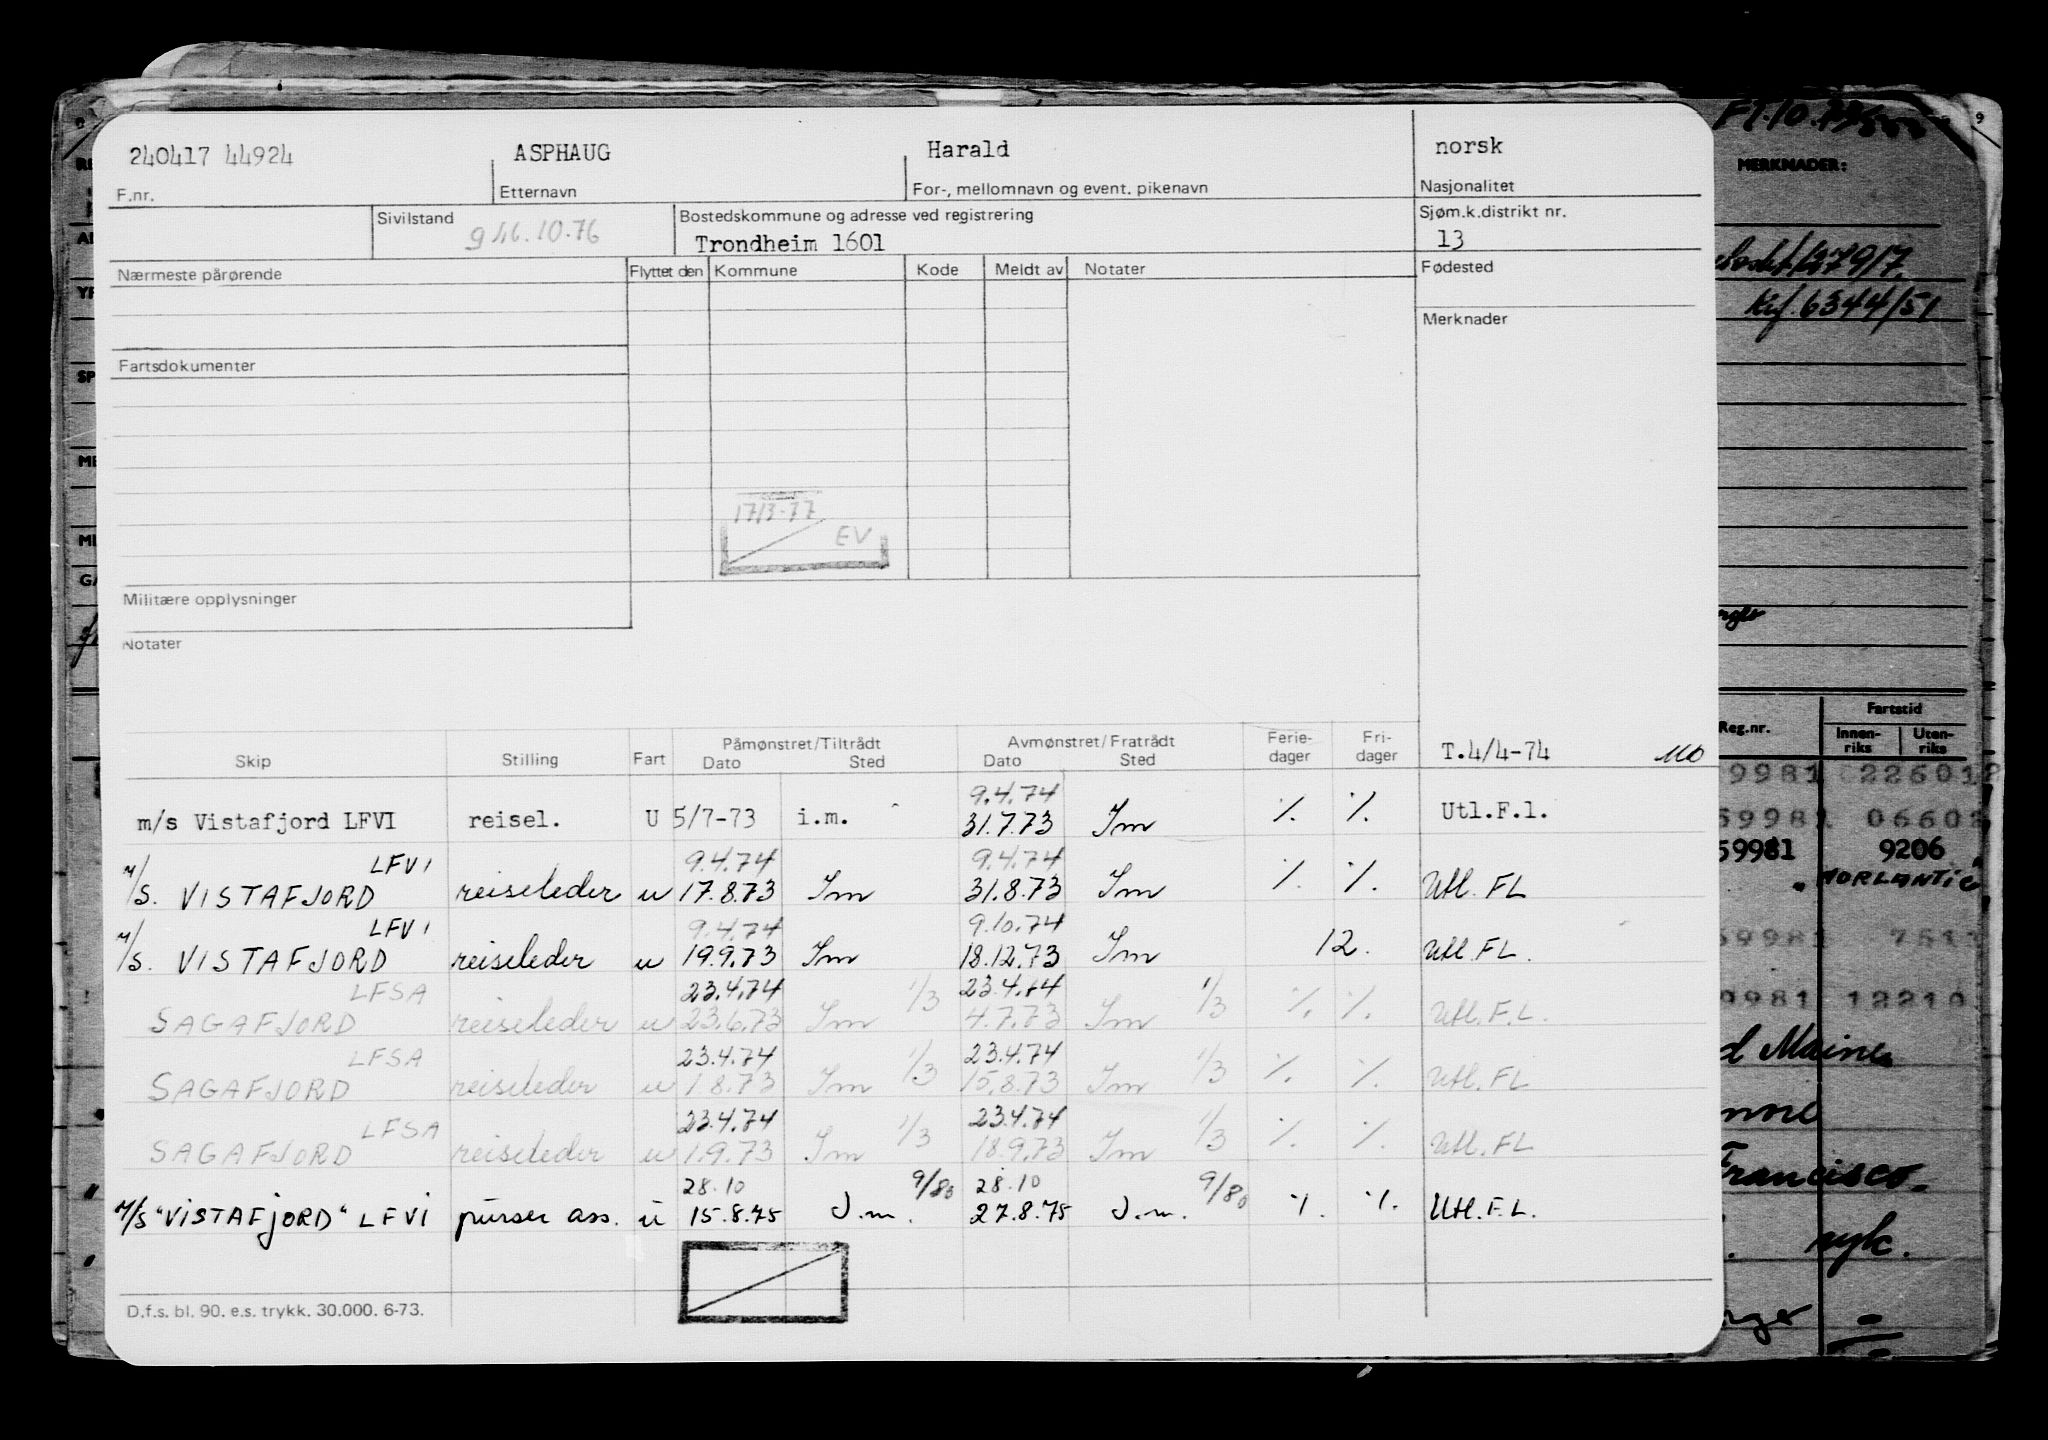 240417 44924 ASPHAUG Harald norsk
F.nr. Etternavn For-, mellomnavn og event. pikenavn Nasjonalitet
Sivilstand Bostedskommune og adresse ved registrering Sjøm.k.distrikt nr.
Trondheim 1601 13
Nærmeste pårørende Flyttet den Kommune Kode Meldt av Notater Fødested
Merknader
Fartsdokumenter
17/3-77
EV
Militære opplysninger
Notater
Skip Stilling Fart Påmønstret/Tiltrådt Dato Sted Avmønstret/Fratrådt Dato Sted Ferie-dager Fri-dager T.4/4-74
9.4.74
m/s Vistafjord LFVI reisel. U 5/7-73 i.m. 31.7.73 Im % % Utl.F.l.
LFVI 9.4.74 9.4.74
M/S. VISTAFJORD reiseleder u 17.8.73 Im 31.8.73 Im % % Utl. FL
LFVI 9.4.74 9.10.74
M/S. VISTAFJORD reiseleder u 19.9.73 Im 18.12.73 Im 12. Utl. FL.
LFSA 23.4.74 1/3 23.4.74 1/3
SAGAFJORD reiseleder u 23.6.73 Im 4.7.73 Im % % Utl. F.L.
LFSA 23.4.74 1/3 23.4.74 1/3
SAGAFJORD reiseleder u 1.8.73 Im 15.8.73 Im % % Utl. FL
LFSA 23.4.74 1/3 23.4.74 1/3
SAGAFJORD reiseleder u 1.9.73 Im 18.9.73 Im % % Utl. FL
28.10 9/80 28.10 9/80
M/S "VISTAFJORD" LFVI purser ass. u 15.8.75 I.m. 27.8.75 I.m. % % Utl. F.L.
D.f.s. bl. 90. e.s. trykk. 30.000. 6-73.
MERKNADER:
6344/51
Reg.nr. Fartstid
Innen-riks Uten-riks
59981 9206
Francisco
nyk.